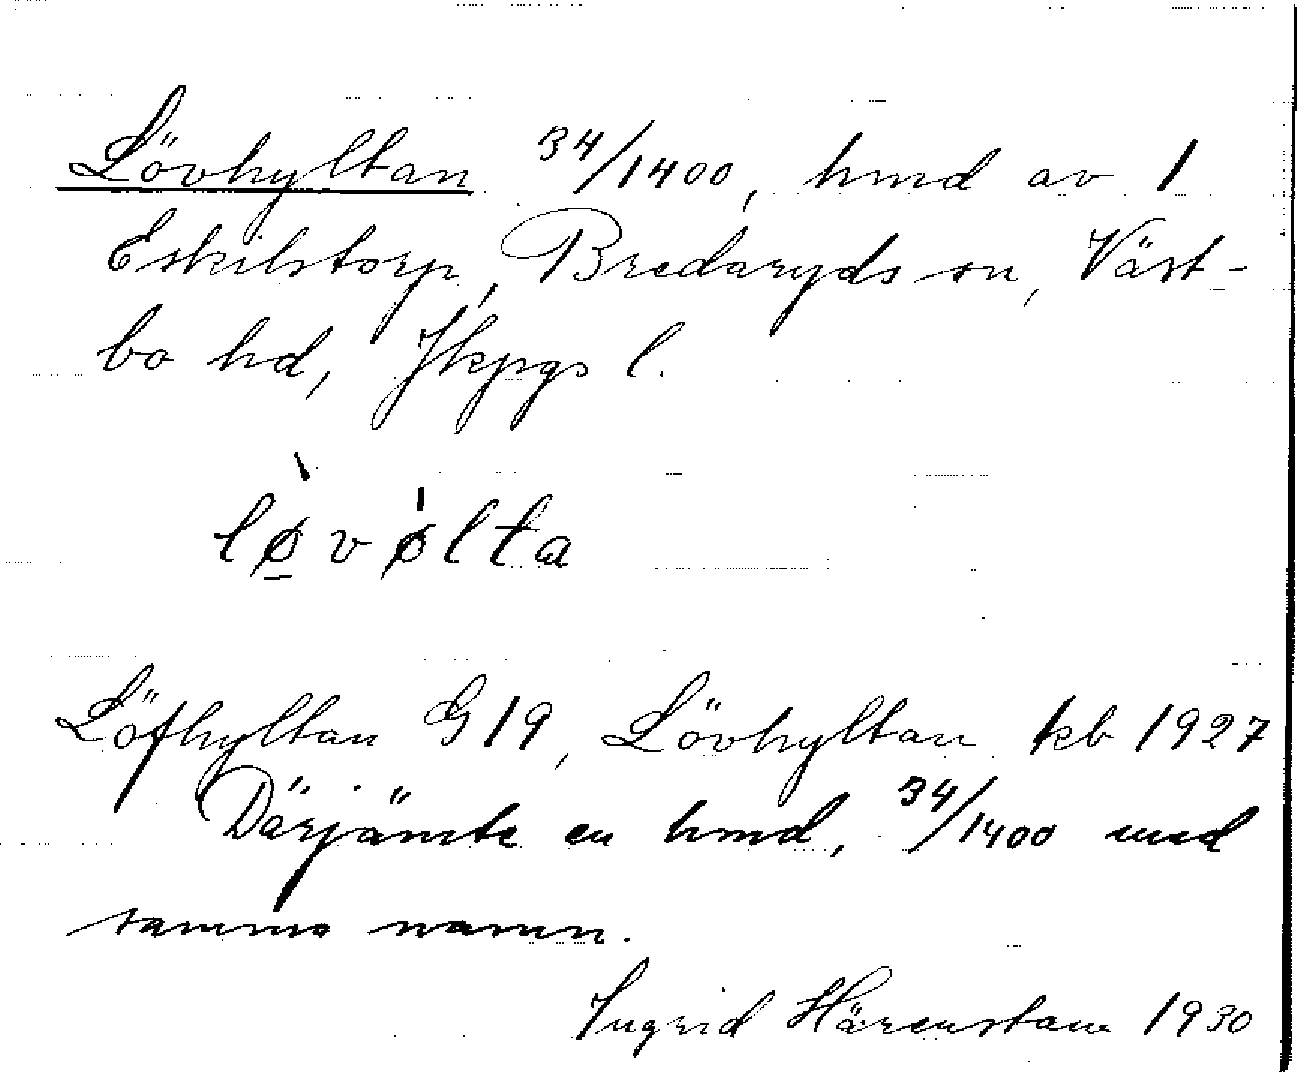 Lövhyltan 34/1400, hmd av 1
Eskilstorp, Bredaryds sn, Väst-
bo hd, Jkpgs l.
lø̠̀vø̍lta
Löfhyltan G19, Lövhyltan kb 1927
Därjämte en hmd, 34/1400 med
samma namn.
Ingrid Härenstam 1930